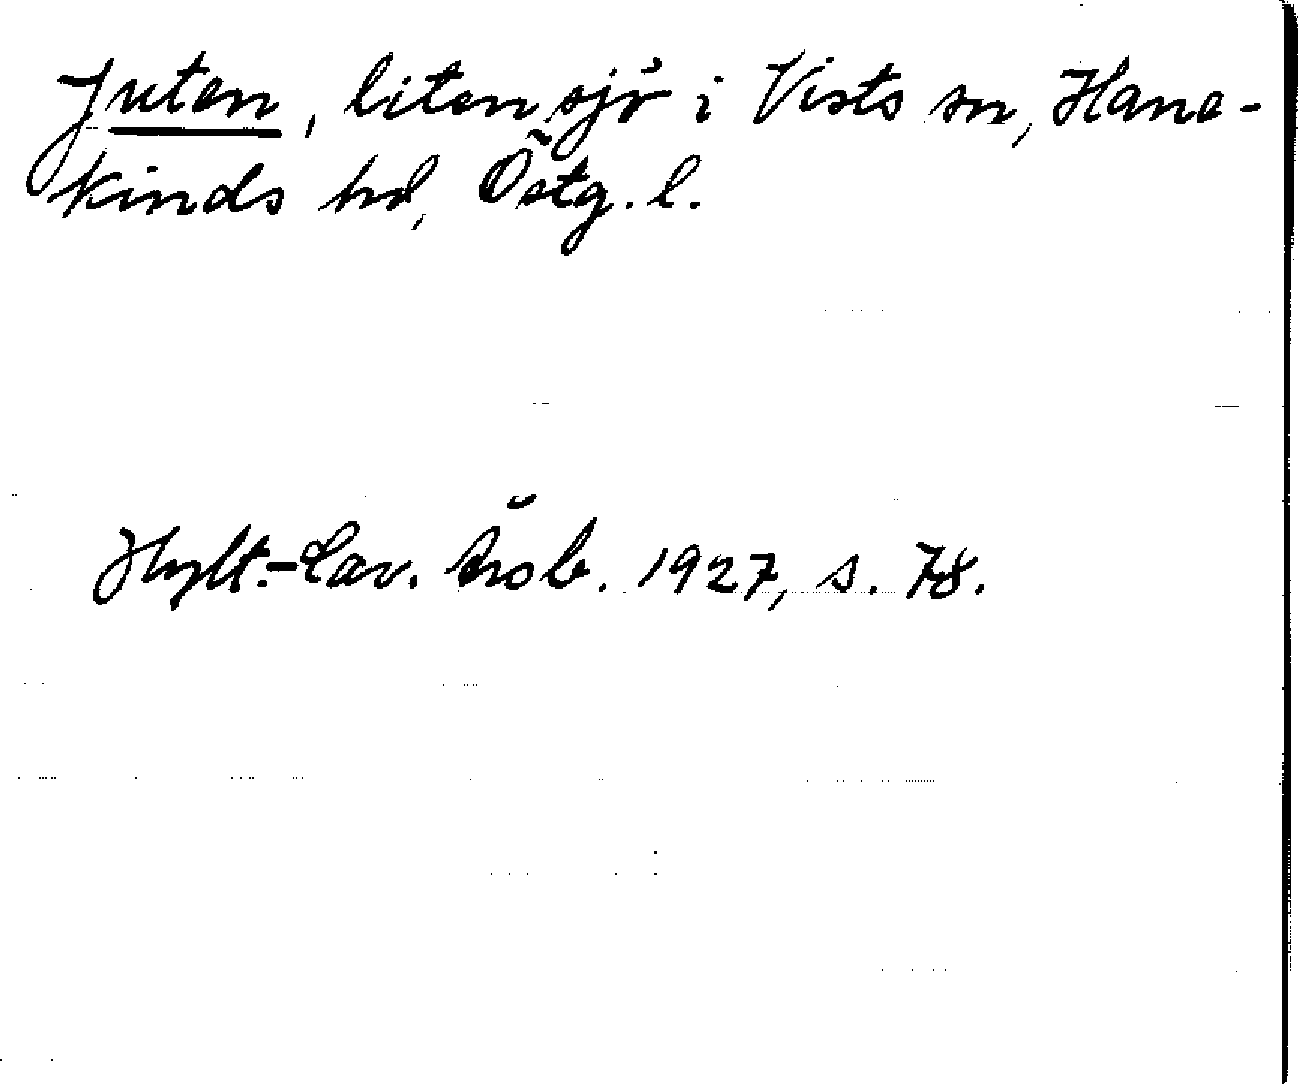 Juten, liten sjö i Vists sn, Hane-
kinds hd, Östg. l.
Hylt.-Cav. Årsb. 1927, s. 78.